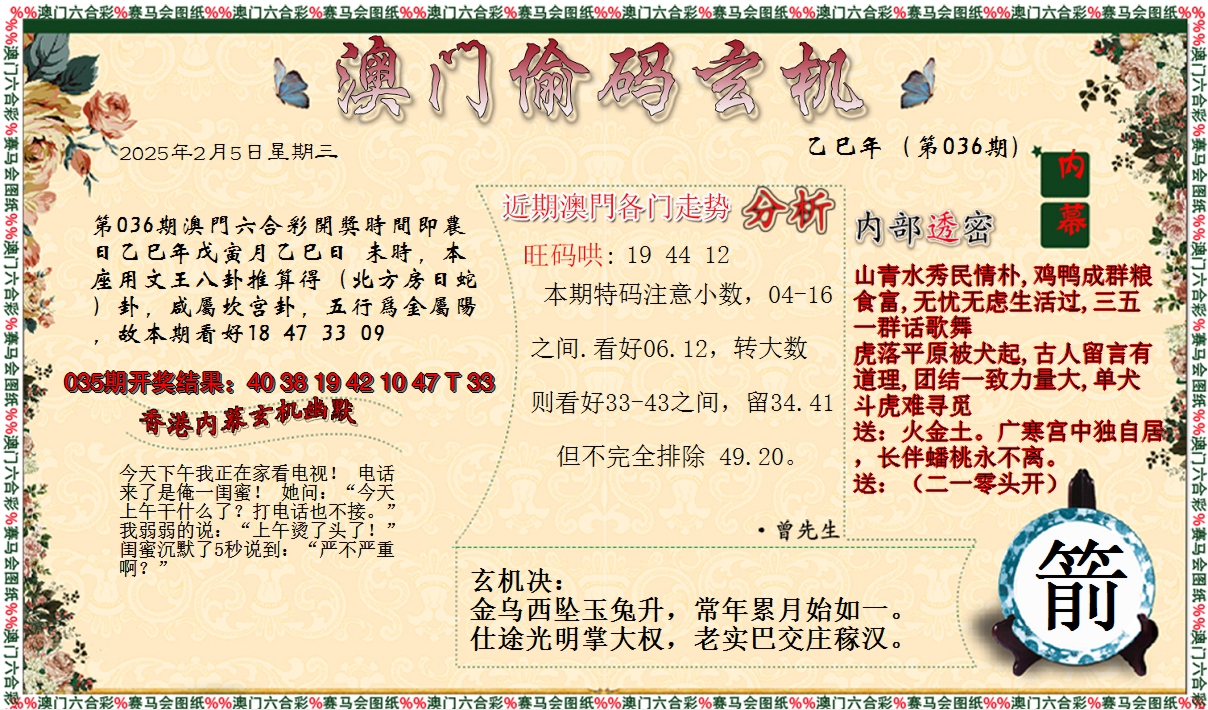 %%澳门六合彩%赛马会图纸%%澳门六合彩%赛马会图纸%%澳门六合彩%赛马会图纸%%澳门六合彩%赛马会图纸%%澳门六合彩%赛马会图纸%%澳门六合彩%赛马会图纸%%
澳门偷码玄机
2025年2月5日星期三
乙巳年（第036期）
内
幕
第036期澳門六合彩開獎時間即農
日乙巳年戊寅月乙巳日 未時，本
座用文王八卦推算得（北方房日蛇
）卦，咸屬坎宫卦，五行爲金屬陽
，故本期看好18 47 33 09
035期开奖结果：40 38 19 42 10 47 T 33
香港内幕玄机幽默
今天下午我正在家看电视！ 电话
来了是俺一闺蜜！ 她问：“今天
上午干什么了？打电话也不接。”
我弱弱的说：“上午烫了头了！”
闺蜜沉默了5秒说到：“严不严重
啊？”
近期澳門各门走势 分析
旺码哄: 19 44 12
本期特码注意小数，04-16
之间.看好06.12，转大数
则看好33-43之间，留34.41
但不完全排除 49.20。
·曾先生
内部透密
山青水秀民情朴,鸡鸭成群粮
食富,无忧无虑生活过,三五
一群话歌舞
虎落平原被犬起,古人留言有
道理,团结一致力量大,单犬
斗虎难寻觅
送：火金土。广寒宫中独自居
，长伴蟠桃永不离。
送：（二一零头开）
玄机决：
金乌西坠玉兔升，常年累月始如一。
仕途光明掌大权，老实巴交庄稼汉。
箭
%%澳门六合彩%赛马会图纸%%澳门六合彩%赛马会图纸%%澳门六合彩%赛马会图纸%%澳门六合彩%赛马会图纸%%澳门六合彩%赛马会图纸%%澳门六合彩%赛马会图纸%%